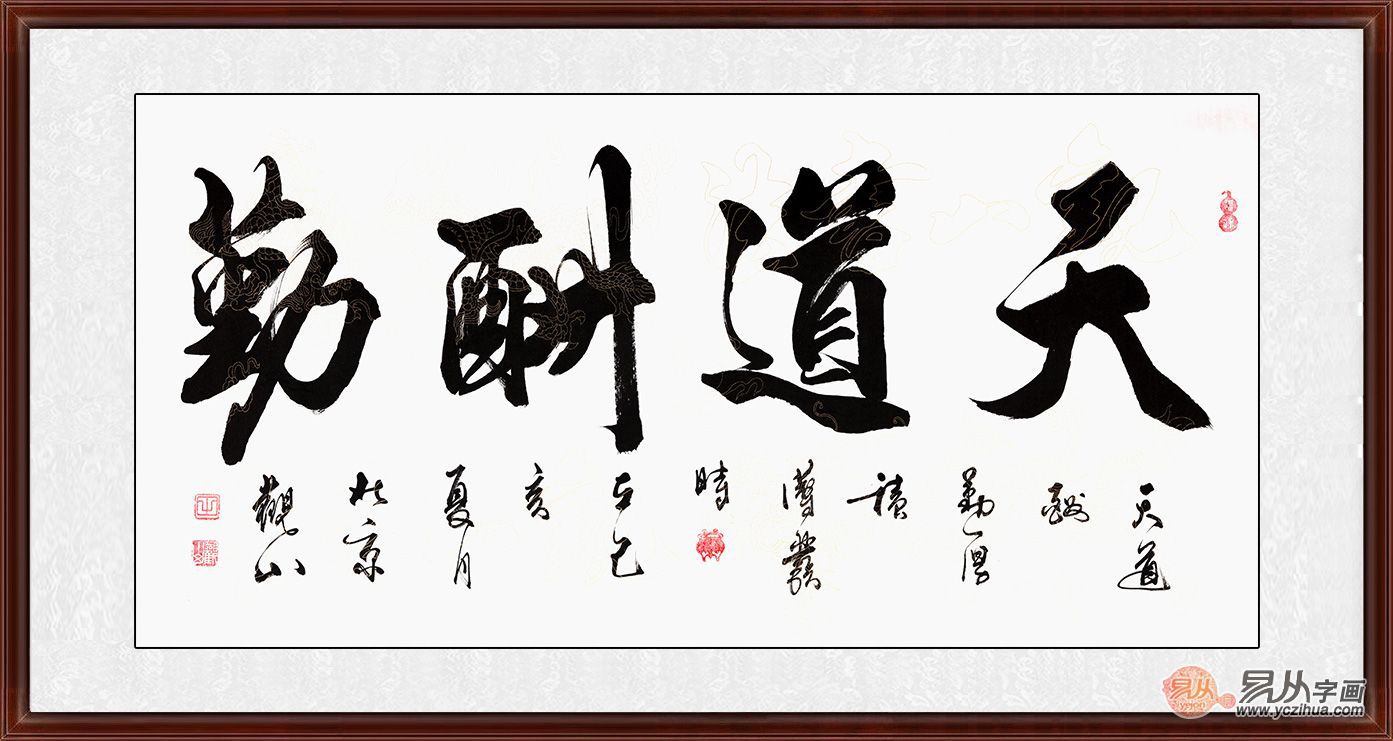 天道酬勤
天道
酬
勤厚
積
薄發
時
在己
亥
夏月
京
觀山
易从
易从字画
www.yczihua.com